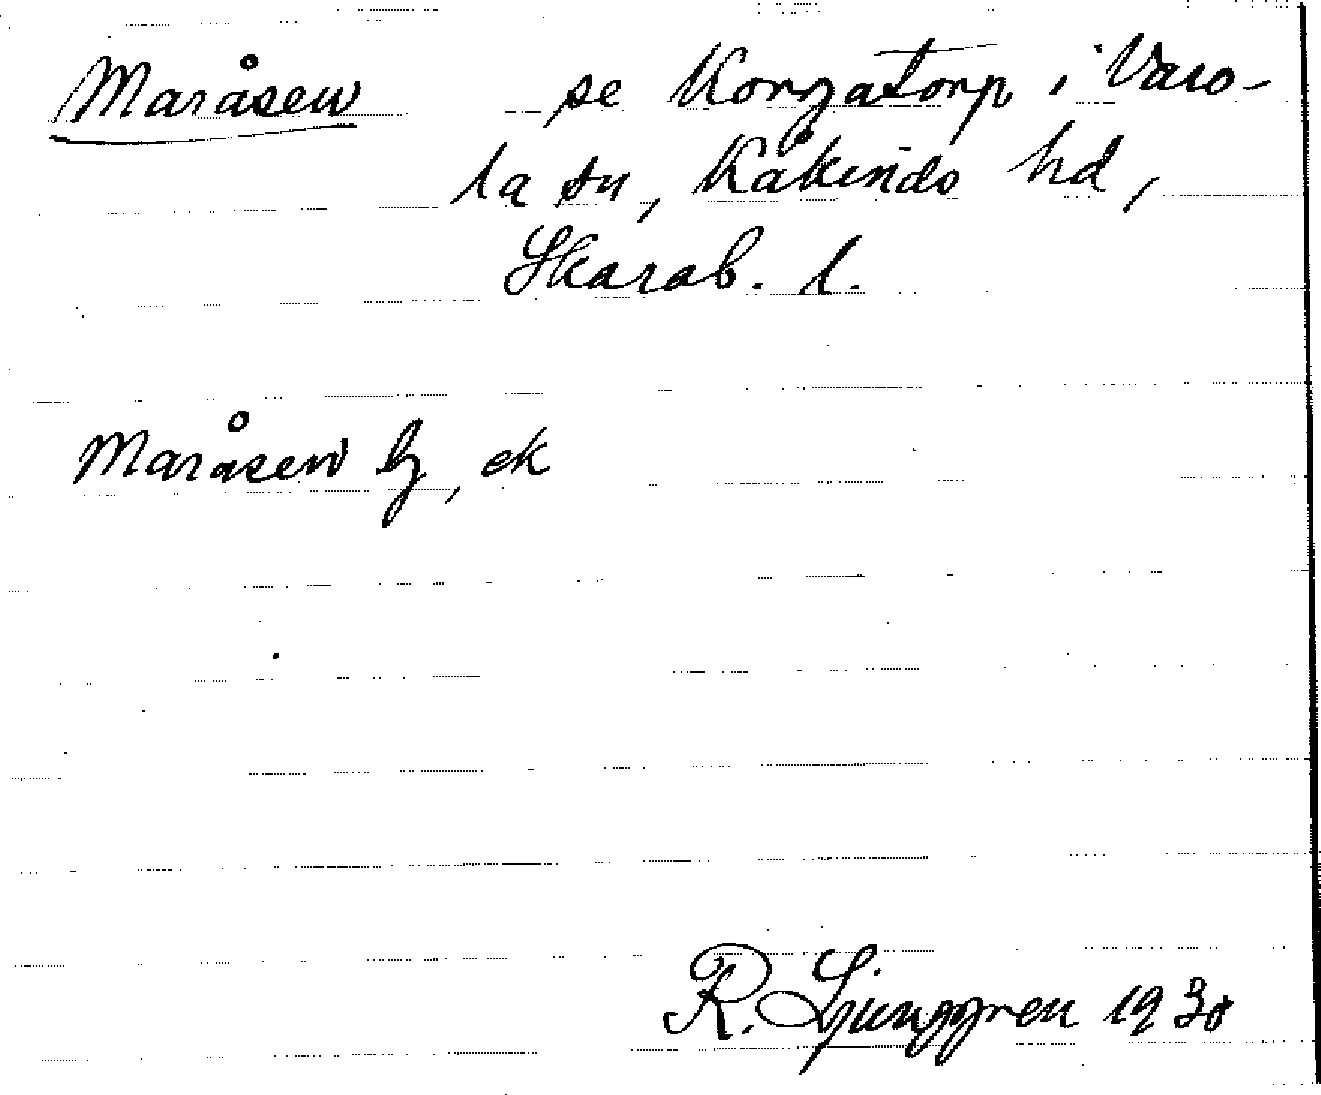 Maråsen se Kongatorp i Varo-
la sn, Kåkinds hd,
Skarab. l.
Maråsen lg, ek
R. Ljunggren 1930